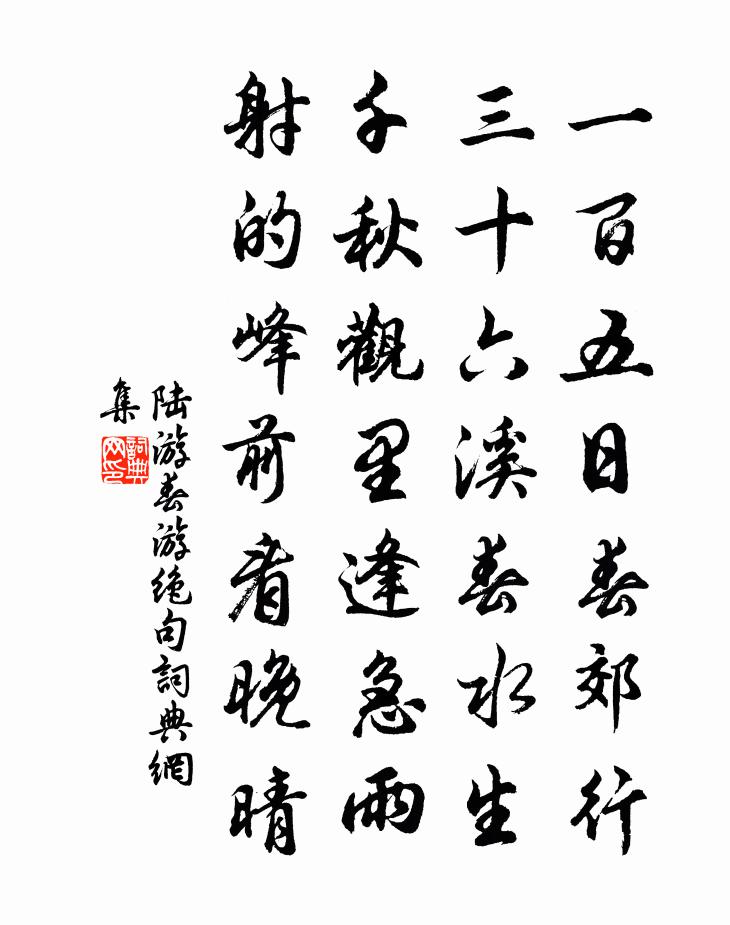 一百五日春郊行
三十六溪春水生
千秋觀里逢急雨
射的峰前看晚晴
陆游春游绝句詞典網
集
詞典网印